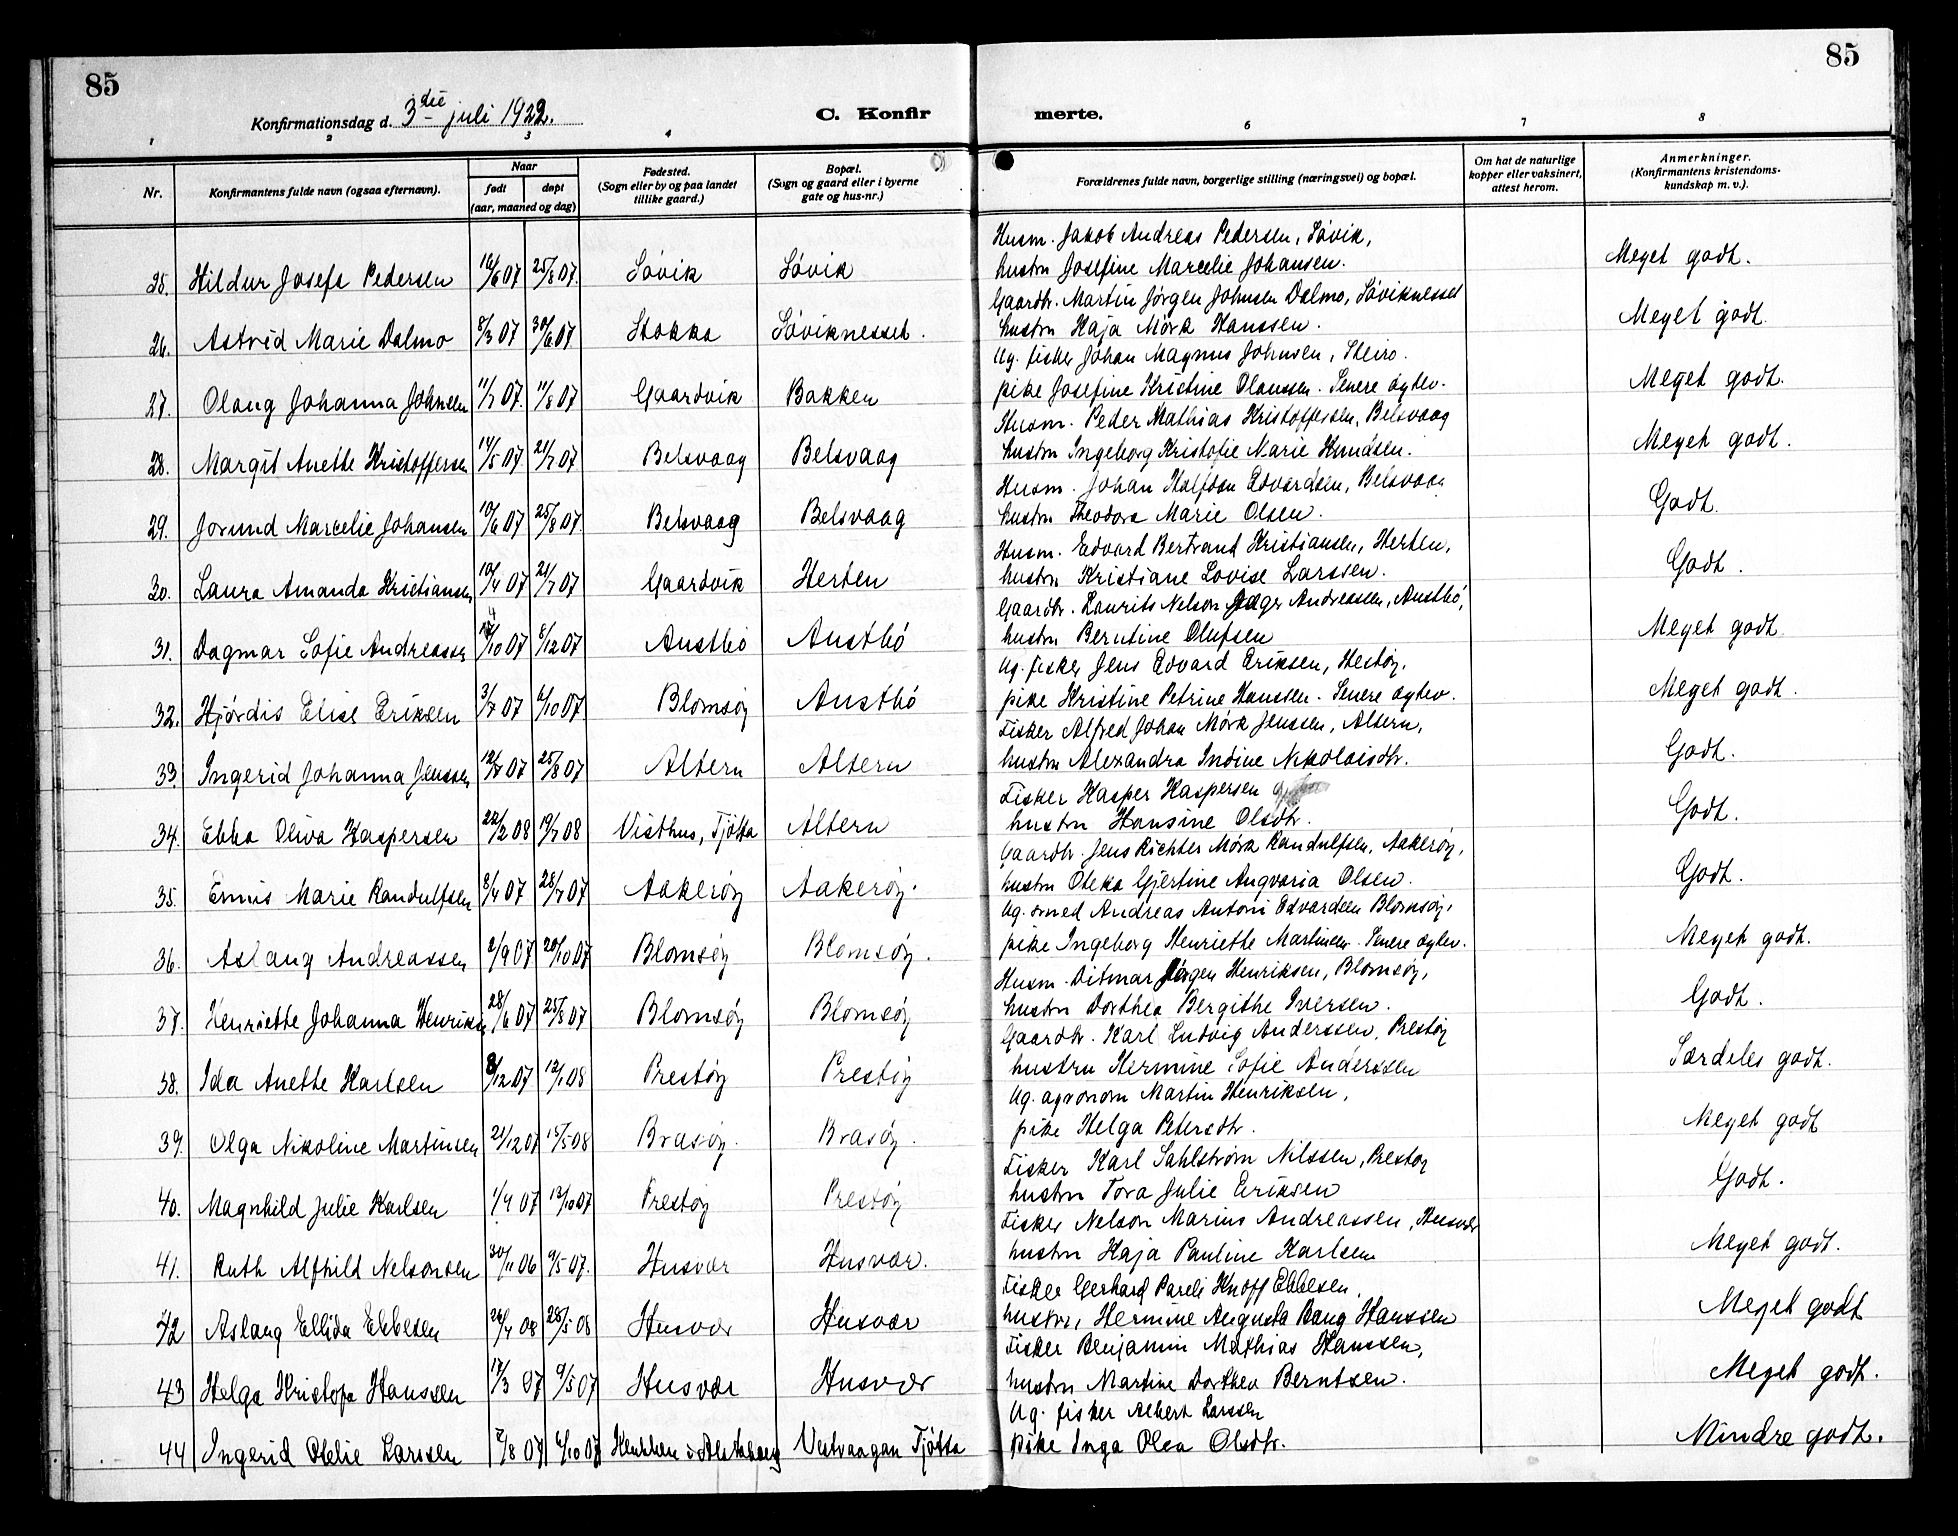 85
85
Konfirmationsdag d. 3die juli 1922.
C. Konfir
merte.
1 2 3 4 6 7 8
Nr.
Konfirmantens fulde navn (ogsaa efternavn).
Naar
født
døpt
(aar, maaned og dag)
Fødested.
(Sogn eller by og paa landet
tillike gaard.)
Bopæl.
(Sogn og gaard eller i byerne
gate og hus-nr.)
Forældrenes fulde navn, borgerlige stilling (næringsvei) og bopæl.
Om hat de naturlige
kopper eller vaksinert,
attest herom.
Anmerkninger.
(Konfirmantens kristendoms-
kundskap m. v.).
Husm. Jakob Andreas Pedersen, Søvik,
25. Hildur Josefa Pedersen /6 07 25/8 07. Søvik Søvik hustru Josefine Marcelie Johansen. Meget godt.
Gaardbr. Martin Jørgen Johnsen Dalmo, Søviknesset
26. Astrid Marie Dalmo 8/3 07 30/6 07 Stokka Søviknesset. hustru Haja Mörk Hanssen. Meget godt.
Ug. fisker Johan Magnus Johnsen, Steiro.
27. Olaug Johanna Johnsen 11/7 07. 11/8 07 Gaardvik Bakken pike Josefine Kristine Olaussen. Senere egtev. Meget godt.
Husm. Peder Mathias Kristoffersen, Belsvaag
28. Margit Anette Kristoffersen 14/5 07 21/7 07 Belsvaag Belsvaag hustru Ingeborg Kristofie Marie Knudsen. Meget godt.
Husm. Johan Halfdan Edvardsen, Belsvaag
29. Jorund Marcelie Johansen 10/6 07 25/8 07 Belsvaag Belsvaag hustru Theodora Marie Olsen. Godt.
Husm. Edvard Bertrand Kristiansen, Herten,
30. Laura Amanda Kristiansen 10/4 07 21/7 07 Gaardvik Herten hustru Kristiane Lovise Larssen. Godt.
Gaardbr. Laurits Nelson Jager Andreassen, Austbö,
31. Dagmar Sofie Andreassen /10 07 8/12 07 Austbö Austbö hustru Berntine Olufsen Meget godt.
Ug. fisker Jens Edvard Eriksen, Hestöy.
32. Hjördis Elise Eriksen 3/7 07 6/10 07 Blomsöy Austbö pike Kristine Petrine Hanssen. Senere egtev. Meget godt.
Fisker Alfred Johan Mörk Jenssen, Altern,
33. Ingerid Johanna Jenssen 12/7 07 25/8 07 Altern Altern hustru Alexandra Indine Nikolaisdtr. Godt.
Fisker Kasper Kaspersen
34. Ebba Oliva Kaspersen 22/2 08 19/7 08 Visthus, Tjötta Altern hustru Hansine Olsdtr. Godt.
Gaardbr. Jens Richter Mörk Randulfsen, Aakeröy,
35. Ennis Marie Randulfsen 8/4 07 28/7 07 Aakeröy Aakeröy. hustru Oteka Gjertine Angvaria Olsen. Godt.
Ug. smed Andreas Antoni Edvardsen Blomsöy,
36. Aslaug Andreassen 2/9 07 20/10 07 Blomsöy Blomsöy. pike Ingeborg Henriette Martinsen. Senere egtev. Meget godt.
Husm. Ditmar Jörgen Henriksen, Blomsöy,
37. Henriette Johanna Henriksen 28/6 07 25/8 07 Blomsöy Blomsöy hustru Dorthea Bergithe Iversen. Godt.
Gaardbr. Karl Ludvig Anderssen, Prestöy
38. Ida Anette Karlsen 8/12 07 12/1 08 Prestöy Prestöy hustru Hermine Sofie Anderssen Særdeles godt.
Ug. agronom Martin Henriksen,
39. Olga Nikoline Martinsen 21/12 07 15/5 08 Brasöy. Brasöy. pike Helga Petersdtr. Meget godt
Fisker Karl Sahlström Nilssen, Prestöy
40. Magnhild Julie Karlsen 1/4 07 13/10 07 Prestöy Prestöy hustru Tora Julie Eriksen Godt.
Fisker Nelson Marius Andreassen, Husvær
41. Ruth Alfhild Nelsonsen 30/11 06 9/5 07. Husvær Husvær. hustru Haja Pauline Karlsen Meget godt.
Fisker Gerhard Pareli Knoff Ebbesen,
42 Aslaug Ellida Ebbesen 26/4 08 28/5 08 Husvær Husvær hustru Hermine Augusta Bang Hanssen Meget godt
Fisker Benjamin Mathias Hanssen,
43 Helga Kristofa Hanssen 17/3 07 9/5 07 Husvær Husvær hustru Martine Dorthea Berntsen. Meget godt.
Ug. fisker Albert Larssen
44 Ingerid Otelie Larssen /8 07 6/10 07 i Alstahaug Vestvaagan Tjötta pike Inga Olea Olsdtr. Mindre godt.